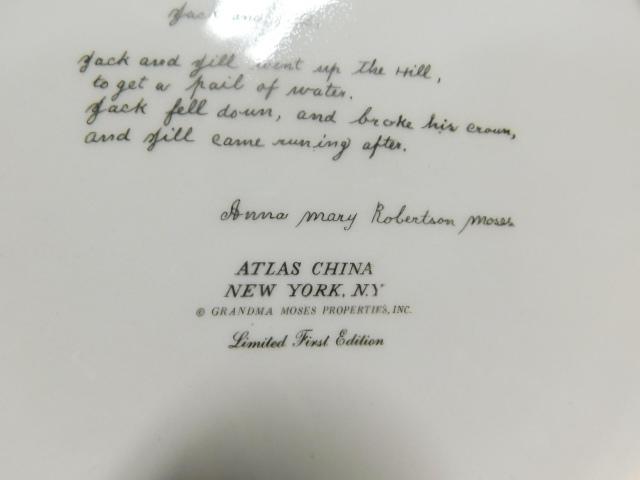 Jack and
Jack and Jill went up the Hill,
to get a pail of water.
Jack fell down, and broke his crown,
and Jill came running after.
Anna Mary Robertson Moses
ATLAS CHINA
NEW YORK, N.Y
© GRANDMA MOSES PROPERTIES, INC.
Limited First Edition